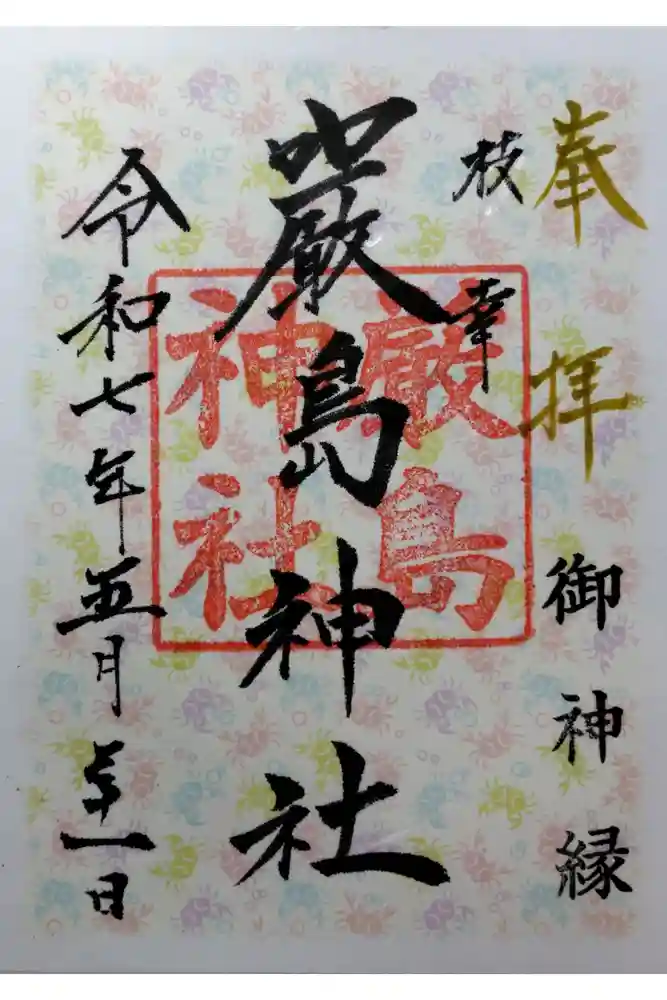 奉拝 御神縁
枝幸
嚴島神社
厳島
神社
令和七年五月二十一日